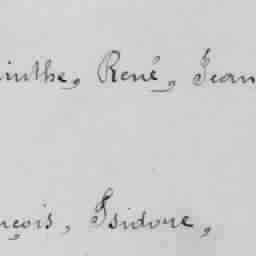 inthe, René, Jean
nçois, Isidore,